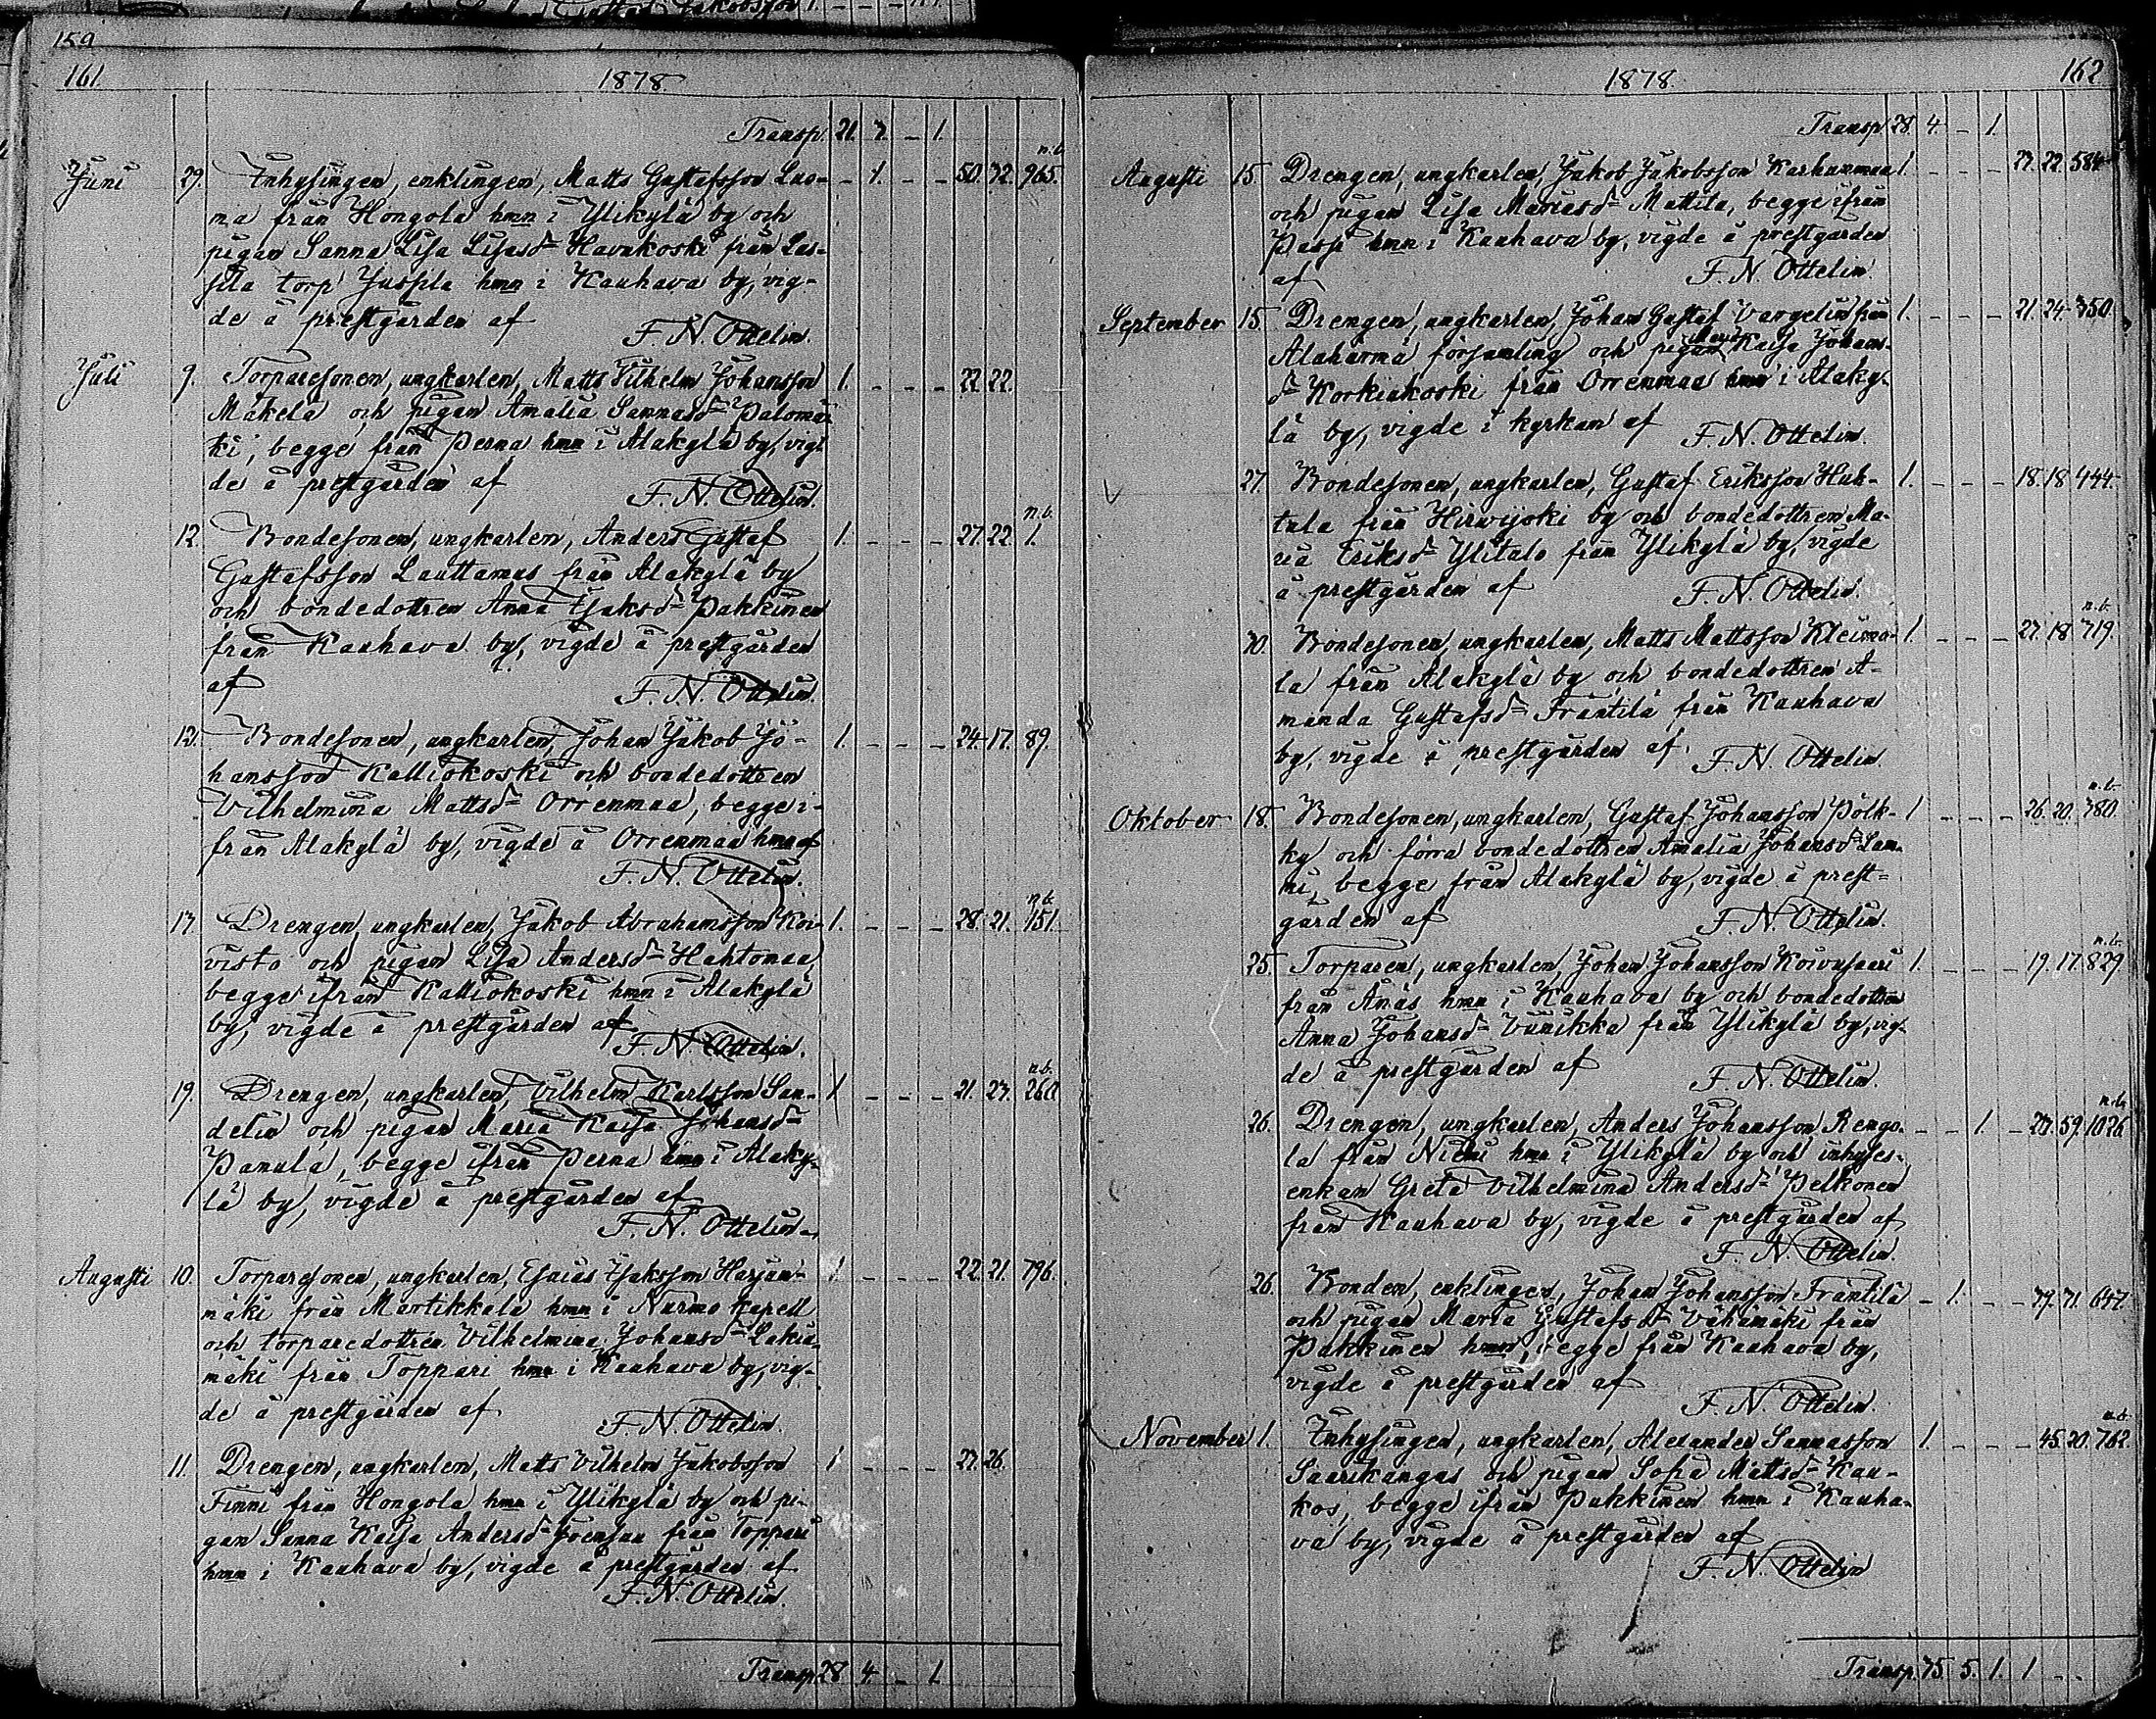 159
161. 1878.
Transp. 21. 3. – 1.
Juni 29. Inhysingen, enklingen, Matts Gustafsson Luo- – 1. – – 50. 32. n.b. 965.
ma från Hongola hmn i Ylikylä by och
pigan Sanna Lisa Lisasd:r Havukoski från Las-
sila torp Jussila hmn i Kauhava by, vig-
de å prestgården af
F. N. Ottelin.
Juli 9. Torparesonen, ungkarlen, Matts Vilhelm Johansson 1. – – – 22. 22.
Mäkelä och pigan Amalia Sannasd:r Palomä-
ki, begge från Perna hmn i Alakylä by, vig-
de å prestgården af
F. N. Ottelin.
12. Bondesonen, ungkarlen, Anders Gustaf 1. – – – 27. 22. n.b. 1.
Gustafsson Lauttamus från Alakylä by
och bondedottren Anna Isaksd:r Pakkinen
från Kauhava by, vigde å prestgården
af
F. N. Ottelin.
12. Bondesonen, ungkarlen, Johan Jakob Jo- 1. – – – 24. 17. 89.
hansson Kalliokoski och bondedottren
Vilhelmina Mattsd:r Orrenmaa, begge i-
från Alakylä by, vigde å Orrenmaa hmn af
F. N. Ottelin.
13. Drengen, ungkarlen, Jakob Abrahamsson Koi- 1. – – – 28. 21. n.b. 151.
visto och pigan Lisa Andersd:r Hahtonaa,
begge ifrån Kalliokoski hmn i Alakylä
by, vigde å prestgården af
F. N. Ottelin.
19. Drengen, ungkarlen, Vilhelm Karlsson San- 1. – – – 21. 23. n.b. 260.
delin och pigan Maria Kaisa Johansd:r
Panula, begge ifrån Perna hmn i Alaky-
lä by, vigde å prestgården af
F. N. Ottelin.
Augusti 10. Torparesonen, ungkarlen, Esaias Isaksson Harjun- 1. – – – 22. 21. 796.
mäki från Martikkala hmn i Nurmo kapell
och torparedottren Vilhelmina Johansd:r Lakia-
mäki från Toppari hmn i Kauhava by, vig-
de å prestgården af
F. N. Ottelin.
11. Drengen, ungkarlen, Matts Vilhelm Jakobsson 1. – – – 23. 26.
Finni från Hongola hmn i Ylikylä by och pi-
gan Sanna Kaisa Andersd:r Joensuu från Toppari
hmn i Kauhava by, vigde å prestgården af
F. N. Ottelin.
Transp. 28 4. – 1.
1878. 162
Transp. 28. 4. – 1.
Augusti 15. Drengen, ungkarlen, Jakob Jakobsson Karhunmaa 1. – – – 23. 22. 584.
och pigan Lisa Mariasd:r Mattila, begge ifrån
Passi hmn i Kauhava by, vigde å prestgården
af F. N. Ottelin.
September 15. Drengen, ungkarlen, Johan Gustaf Vargelin från 1. – – – 21. 24. 350.
Alahärmä församling och pigan Maria Kaisa Johans-
d:r Korkiakoski från Orrenmaa hmn i Alaky-
lä by, vigde i kyrkan af F. N. Ottelin.
27. Bondesonen, ungkarlen, Gustaf Eriksson Huh- 1. – – – 18. 18. 444.
tala från Hirvijoki by och bondedottren Ma-
ria Eriksd:r Ylitalo från Ylikylä by, vigde
å prestgården af F. N. Ottelin.
30. Bondesonen, ungkarlen, Matts Mattsson Kleimo- 1. – – – 27. 18. n.b. 719.
la från Alakylä by och bondedottren A-
manda Gustafsd:r Frantilä från Kauhava
by, vigde å prestgården af. F. N. Ottelin.
Oktober 18. Bondesonen, ungkarlen, Gustaf Johansson Pölk- 1 – – – 26. 20. n.b. 380.
ky och förra bondedottren Amalia Johansd:r Lam-
mi, begge från Alakylä by, vigde å prest-
gården af F. N. Ottelin.
25. Torparen, ungkarlen, Johan Johansson Koivusaari 1. – – – 19. 17. n.b. 829.
från Änäs hmn i Kauhava by och bondedottren
Anna Johansd:r Vunikka från Ylikylä by, vig-
de å prestgården af F. N. Ottelin.
26. Drengen, ungkarlen, Anders Johansson Rengo- – – 1. – 23. 59. n.b. 1026.
la från Niemi hmn i Ylikylä by och inhyses-
enkan Greta Vilhelmina Andersd:r Pelkonen
från Kauhava by, vigde å prestgården af
F. N. Ottelin.
26. Bonden, enklingen, Johan Johansson Frantilä – 1. – – 39. 31. 647.
och pigan Maria Gustafsd:r Vähämäki från
Pakkinen hmn, begge från Kauhava by,
vigde å prestgården af
F. N. Ottelin.
November 1. Inhysingen, ungkarlen, Alexander Sannasson 1. – – – 45. 20. n.b. 762.
Saarikangas och pigan Sofia Mattsd:r Kau-
kos, begge ifrån Pukkinen hmn i Kauha-
va by, vigde å prestgården af
F. N. Ottelin
Transp. 35. 5. 1. 1